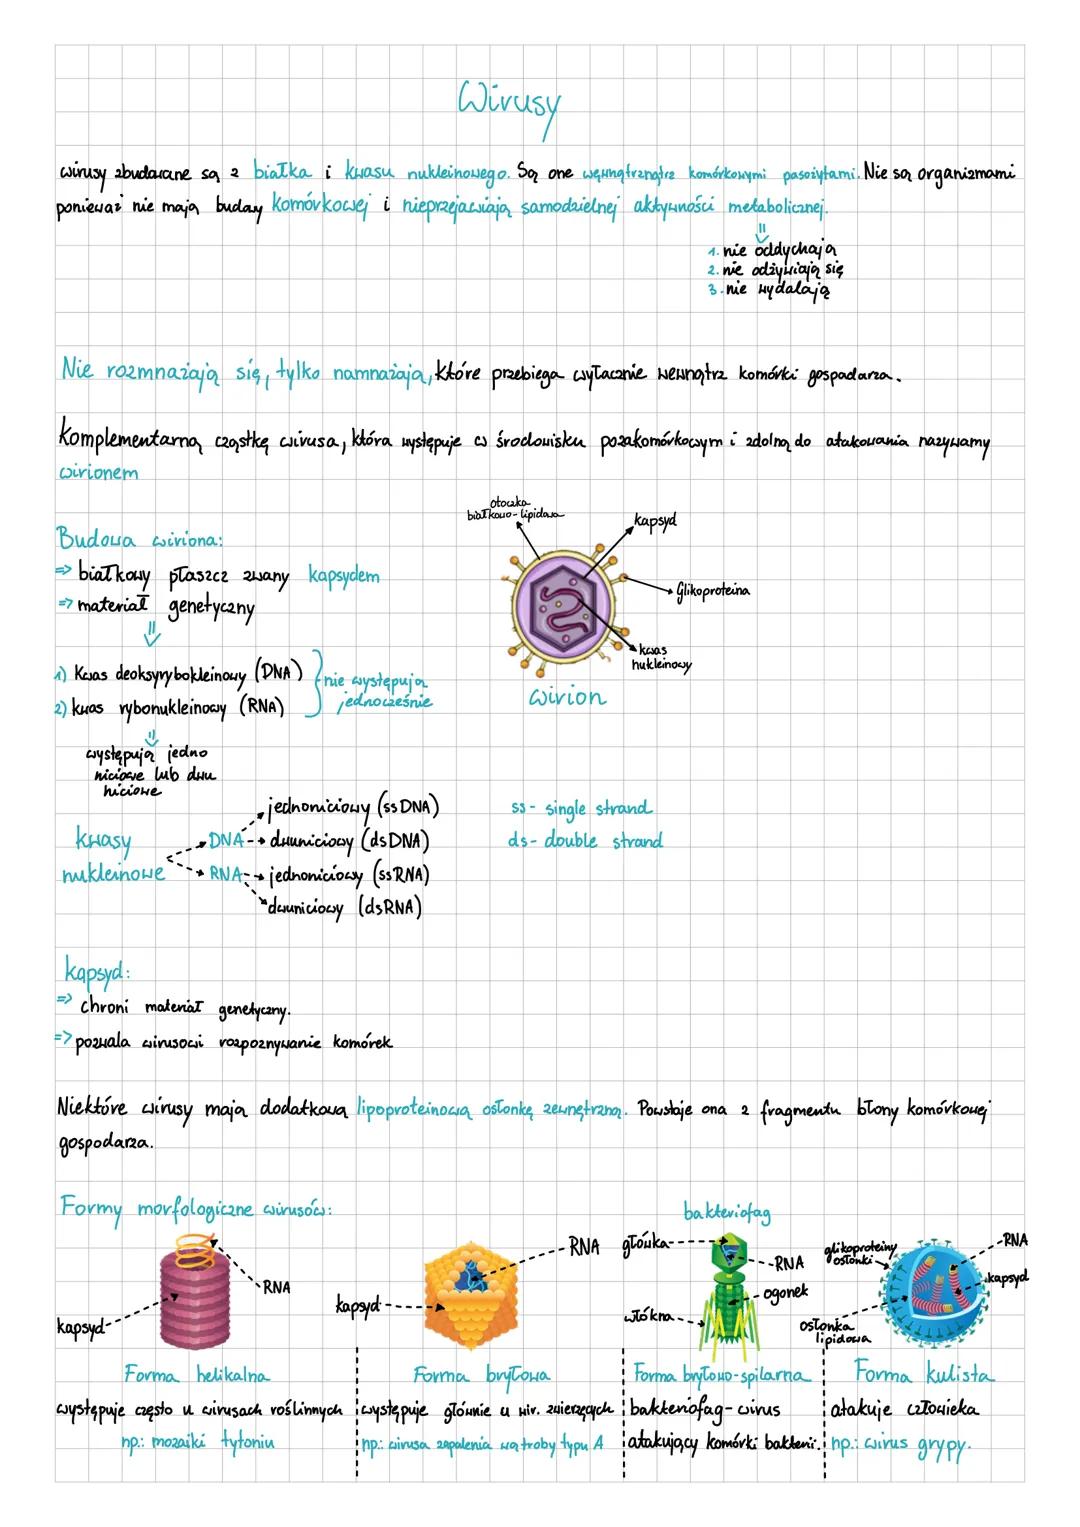 Wirusy
wirusy zbudowane są z białka i kwasu nukleinowego. Są one wewnątrznątrz komórkowymi pasożytami. Nie są organizmami
ponieważ nie mają budowy komórkowej i nieprzejawiają samodzielnej aktywności metabolicznej.
1. nie oddychają
2. nie odżywiają się
3. nie wydalają
Nie rozmnażają się, tylko namnażają, które przebiega wyłacznie wewnątrz komórki gospodarza.
Komplementarną cząstkę wirusa, która występuje w środowisku pozakomórkowym i zdolną do atakowania nazywamy
wirionem
otoczka
białkowo-lipidowa
kapsyd
Budowa wiriona:
=> białkowy płaszcz zwany kapsydem
Glikoproteina
=> materiał genetyczny
kwas
nukleinowy
1) Kwas deoksyrybokleinowy (DNA)
2) kwas rybonukleinowy (RNA)
nie występują
jednocześnie
wirion
występują jedno
niciowe lub dwu
niciowe
kwasy
nukleinowe
DNA
jednoniciowy (ssDNA)
dwuniciowy (dsDNA)
RNA
jednoniciowy (ssRNA)
dwuniciowy (dsRNA)
ss - single strand
ds - double strand
kapsyd:
=> chroni materiał genetyczny.
=> pozwala wirusowi rozpoznywanie komórek
Niektóre wirusy mają dodatkową lipoproteinową osłonkę zewnętrzną. Powstaje ona z fragmentu błony komórkowej
gospodarza.
Formy morfologiczne wirusów:
RNA
kapsyd
Forma helikalna
występuje często u wirusach roślinnych
np.: mozaiki tytoniu
RNA
kapsyd
Forma bryłowa
występuje głównie u wir. zwierzęcych
np.: wirusa zapalenia wątroby typu A
bakteriofag
główka
RNA
ogonek
włókna
Forma bryłowo-spilarna
bakteriofag - wirus
atakujący komórki bakterii.
glikoproteiny
osłonki
RNA
kapsyd
osłonka
lipidowa
Forma kulista
atakuje człowieka
np.: wirus grypy.